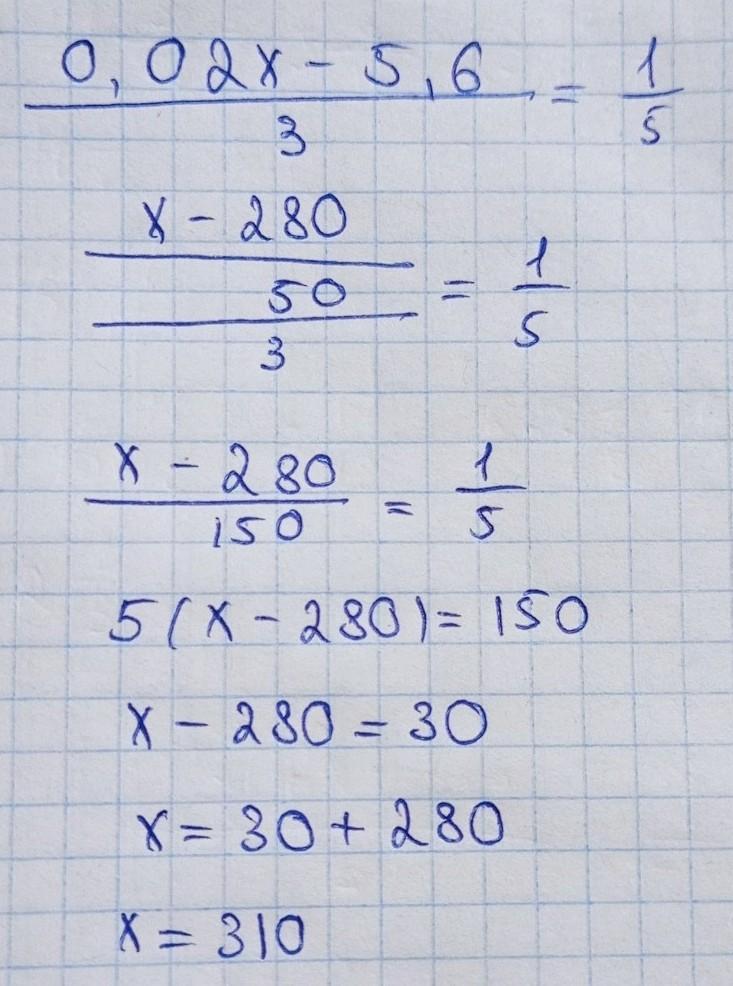 (0,02x - 5,6)/3 = 1/5
((x - 280)/50)/3 = 1/5
(x - 280)/150 = 1/5
5(x - 280) = 150
x - 280 = 30
x = 30 + 280
x = 310